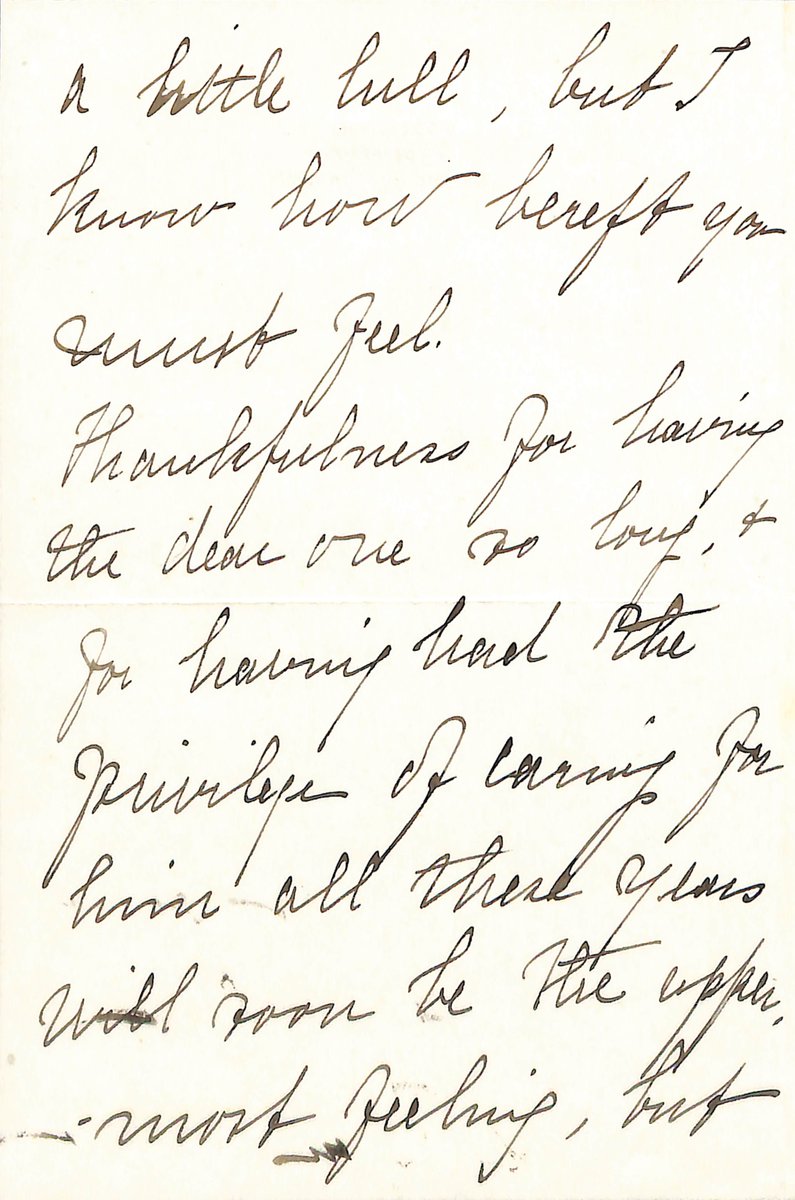 a little lull, but I
know how bereft you
must feel.
Thankfulness for having
the dear one so long, &
for having had the
privilege of caring for
him all these years
will soon be the upper-
-most feeling, but